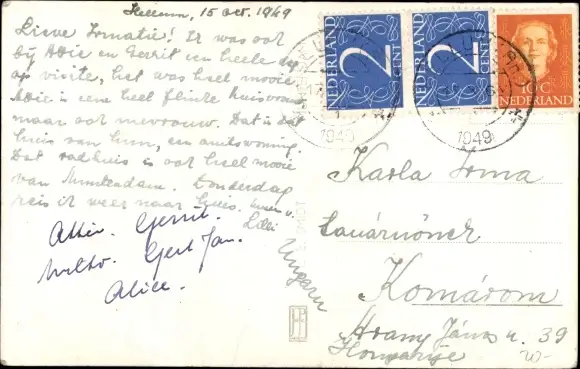 15 Oct. 1949
Lieve Irmatie! Ik was ook
bij Attie en Gerrit een heele dag
op visite, het was heel mooi.
Attie is een heel flinke huisvrouw,
maar ook mevrouw. Dat is dat
huis van hun, een ambtswoning.
Dat raadhuis is ook heel mooi
van Amsterdam. Donderdag
reis ik weer naar huis.
Lilli
Attie. Gerrit.
Gert Jan.
Alice.
NEDERLAND
2
CENT
NEDERLAND
2
CENT
10C
NEDERLAND
1949
1949
Karla Irma
tanárnőnek
Komárom
Arany János u. 39
Hongarije
Ungarn